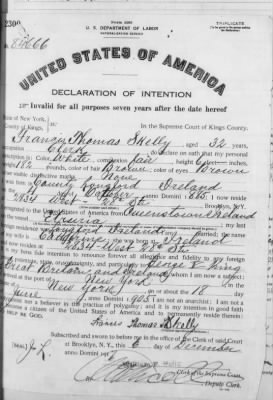 2300
Form 2203
U. S. DEPARTMENT OF LABOR
NATURALIZATION SERVICE
TRIPLICATE
No. 84666
UNITED STATES OF AMERICA
DECLARATION OF INTENTION
Invalid for all purposes seven years after the date hereof
State of New York,
County of Kings,
In the Supreme Court of Kings County.
I, Francis Thomas Skelly, aged 32 years,
occupation Clerk, do declare on oath that my personal
description is: Color White, complexion fair, height feet inches,
weight 182 pounds, color of hair Brown, color of eyes Brown
other visible distinctive marks None
I was born in County Longford Ireland
on the day of October, anno Domini; I now reside
at 2434 West St., Brooklyn, N.Y.
I emigrated to the United States of America from Queenstown Ireland
on the vessel; my last
foreign residence was Longford Ireland
I am married; the name
of my wife is Catherine; she was born at Ireland
and now resides at 2434 West St.
It is my bona fide intention to renounce forever all allegiance and fidelity to any foreign
prince, potentate, state, or sovereignty, and particularly to George V, King of
Great Britain and Ireland, of whom I am now a subject;
I arrived at the port of New York, in the
State of New York, on or about the 18 day
of June, anno Domini 1905; I am not an anarchist; I am not a
polygamist nor a believer in the practice of polygamy; and it is my intention in good faith
to become a citizen of the United States of America and to permanently reside therein:
SO HELP ME GOD.
Francis Thomas Skelly
Subscribed and sworn to before me in the office of the Clerk of said Court
at Brooklyn, N.Y., this 6 day of
anno Domini
[SEAL]
Clerk of the Supreme Court.
Deputy Clerk.